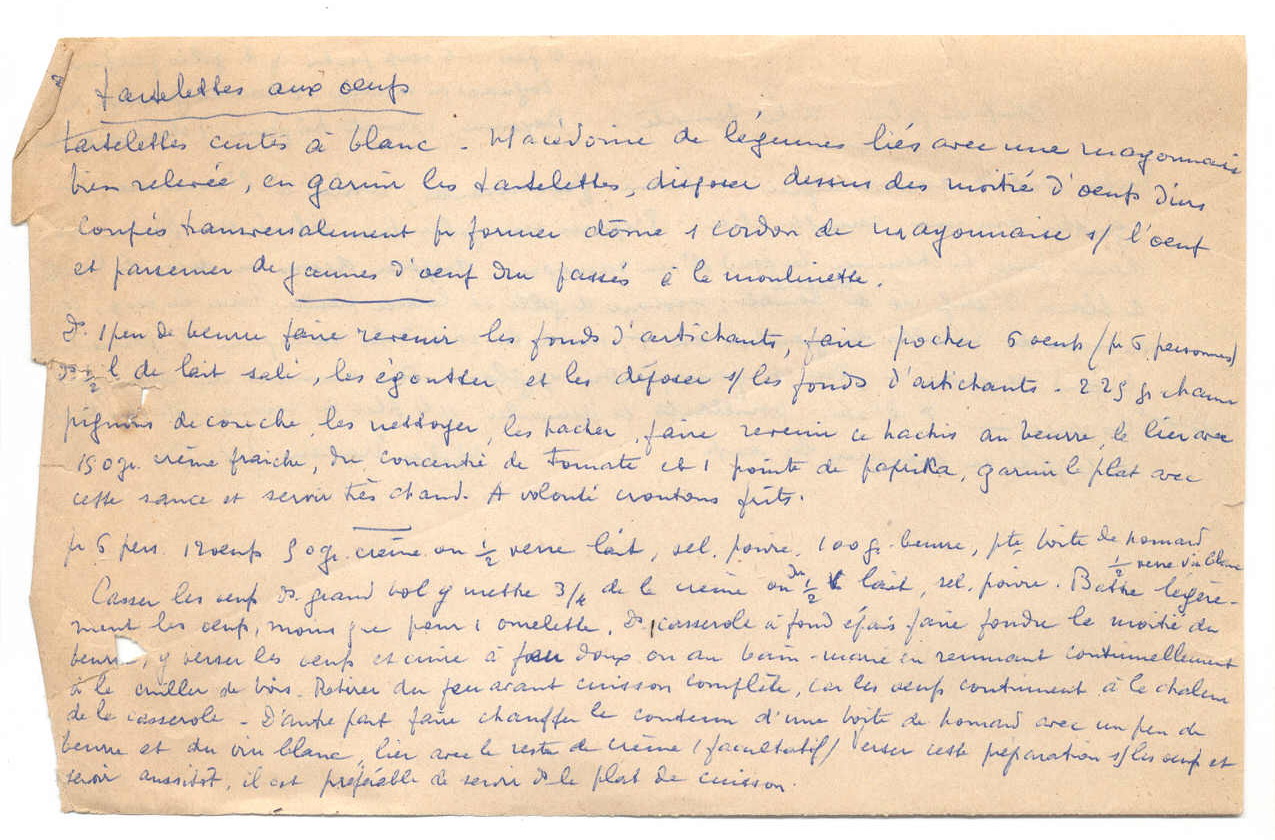 tartelettes aux oeufs
tartelettes cuites à blanc - Macédoine de légumes liés avec une mayonnaise
bien relevée, en garnir les tartelettes, disposer dessus des moitié d'oeufs durs
coupés transversalement pr former dôme 1 cordon de mayonnaise s/ l'oeuf
et parsemer de jaunes d'oeuf dur passés à la moulinette.
Ds 1 peu de beurre faire revenir les fonds d'artichauts, faire pocher 6 oeufs (pr 6 personnes)
ds 1/2 l de lait salé, les égoutter et les déposer s/ les fonds d'artichauts - 225 gr cham
pignons de couche, les nettoyer, les hacher, faire revenir ce hachis au beurre, le lier avec
150 gr. crème fraiche, du concentré de Tomate et 1 pointe de paprika, garnir le plat avec
cette sauce et servir très chaud. A volonté croutons frits.
pr 6 pers. 12 oeufs 50 gr. crème ou 1/2 verre lait, sel, poivre, 100 gr. beurre, pte boite de homard
1/2 verre vin blanc
Casser les oeufs ds grand bol y mettre 3/4 de la crème ou du 1/2 lait, sel, poivre. Battre légère-
ment les oeufs, moins que pour 1 omelette. Ds 1 casserole à fond épais faire fondre la moitié du
beurre, y verser les oeufs et cuire à feu doux ou au bain-marie en remuant continuellement
à la cuiller de bois. Retirer du feu avant cuisson complète, car les oeufs continuent à la chaleur
de la casserole - D'autre part faire chauffer le contenu d'une boite de homard avec un peu de
beurre et du vin blanc, lier avec le reste de crème (facultatif) Verser cette préparation s/ les oeufs et
servir aussitôt, il est préférable de servir ds le plat de cuisson.